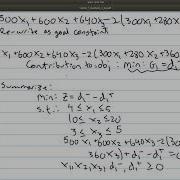 500x₁+600x₂+640x₃-2(300x₁+280x
Re-write as goal constraint
x₁+600x₂+640x₃-2(300x₁+280x₂+360x
Contribution to obj: min: G₁=d₂
Summarize:
min: Z=d₁⁻-d₁⁺
s.t.: 4≤x₁≤5
10≤x₂≤20
3≤x₃≤5
500x₁+600x₂+640x₃-2(3
360x₃)+d₁⁻-d₁⁺=0
x₁,x₂,x₃,d₁⁻,d₁⁺≥0